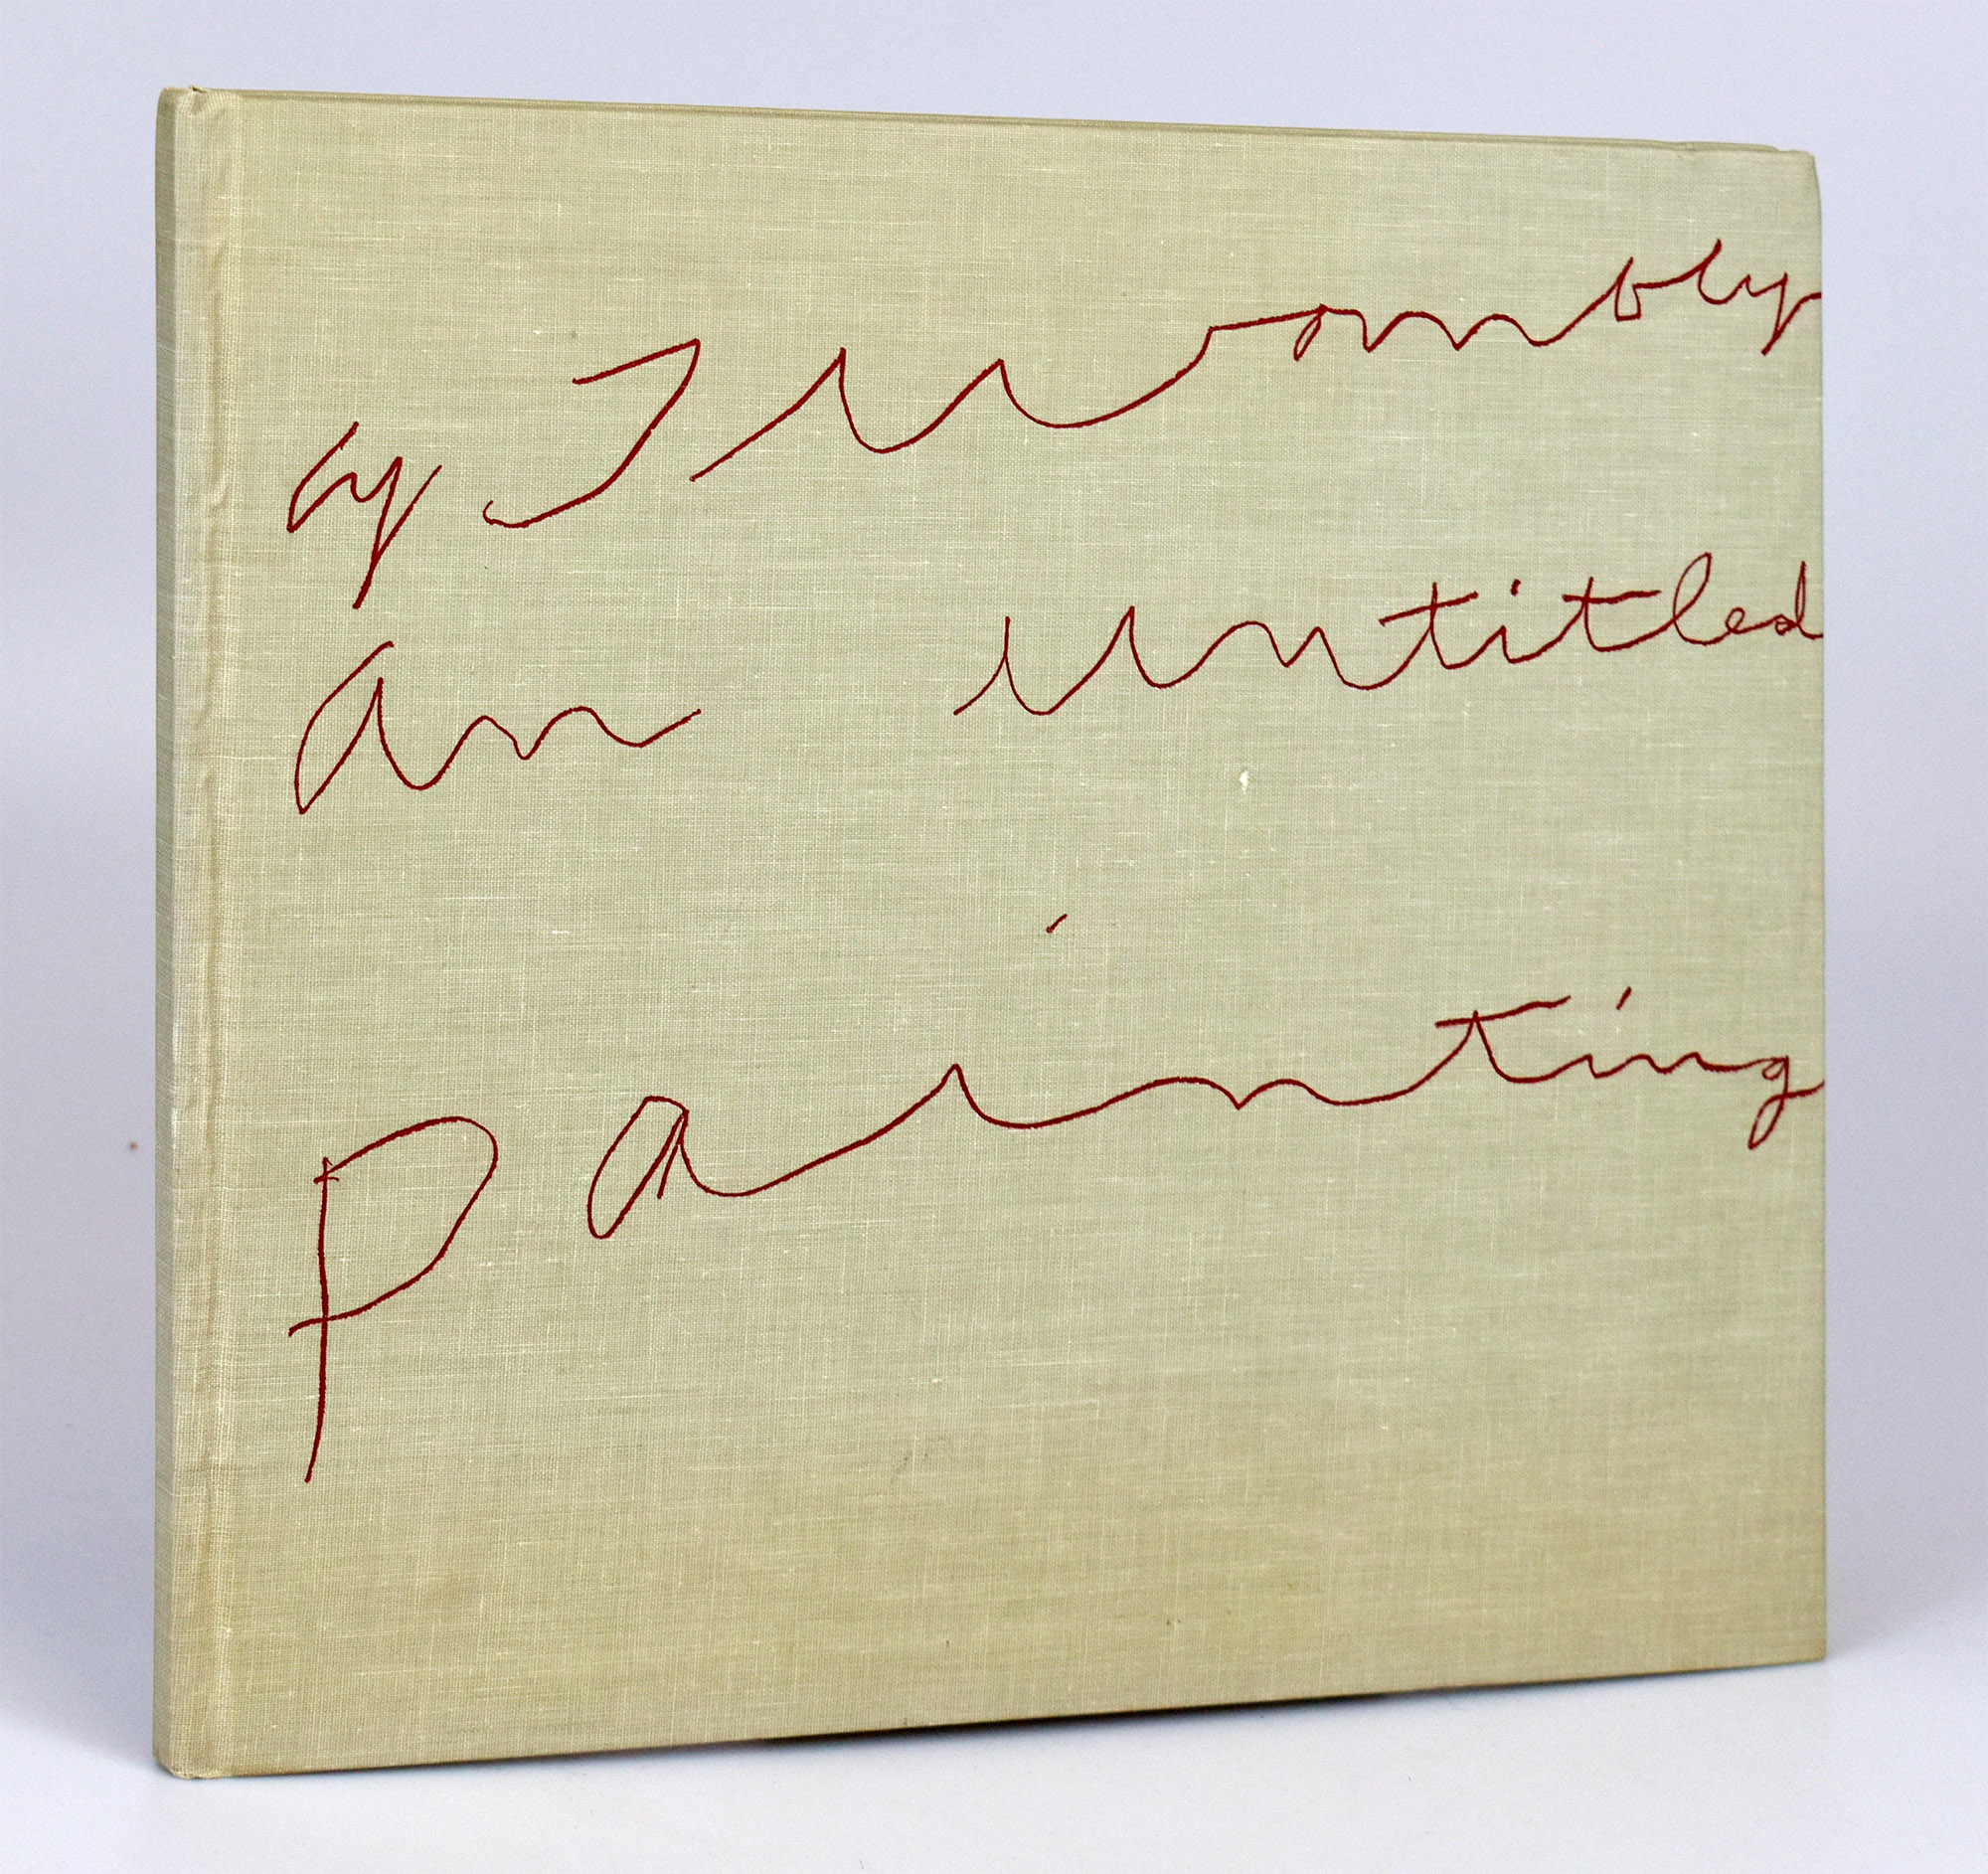 Cy Twombly
An Untitled
Painting